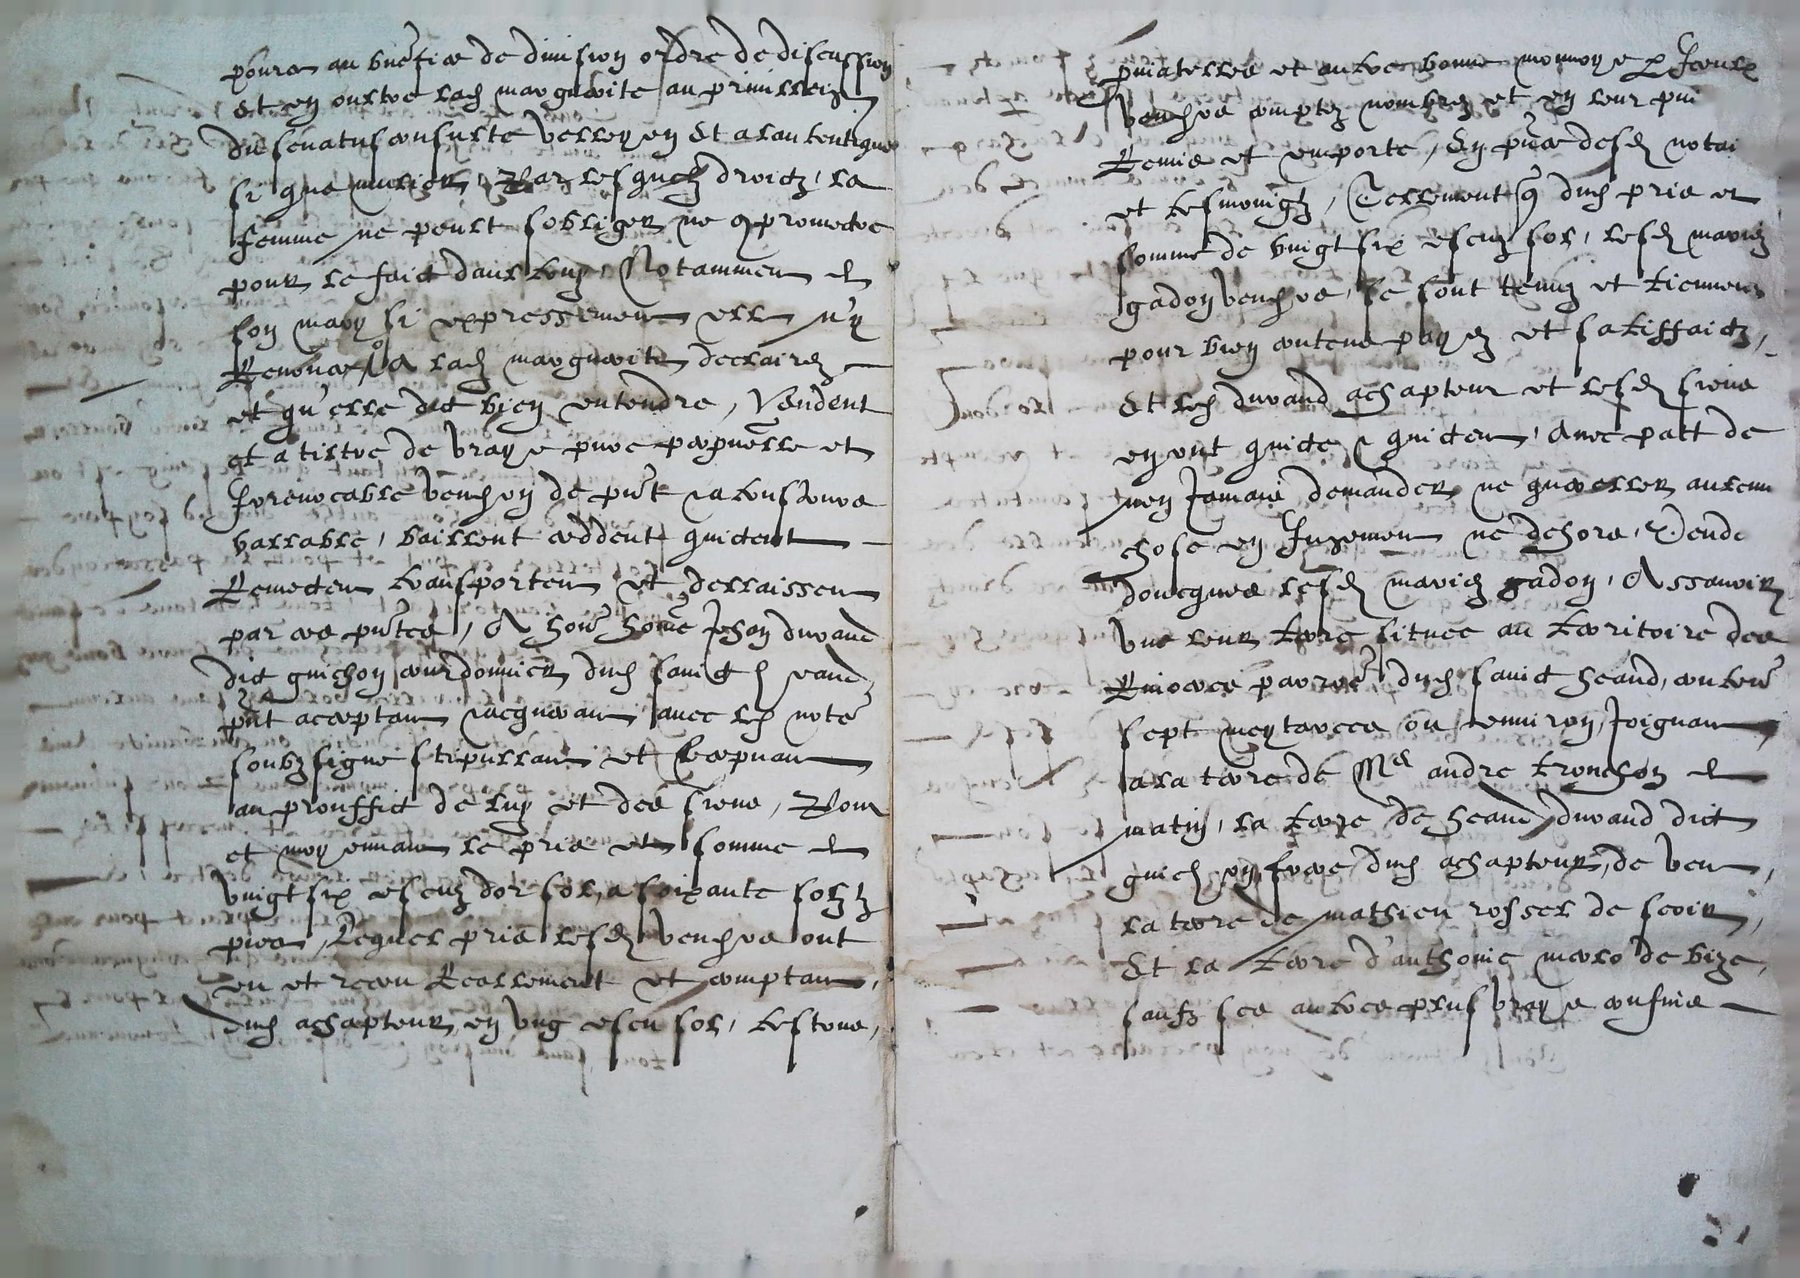 au benefice de division ordre de discussion
Et en oultre lad marguerite au privilleige
du senatusconsulte velleyen Et a lautentique
si qua mulier, Par lesquelz droictz, la
femme ne peult sobliger ne promectre
pour le faict daultruy, Notamment de
son mary si expressement elle n'y
Renonce, A lad marguerite declairez
et qu'elle dit bien entendre, Vendent
et a tiltre de vraye pure perpetuelle et
Irrevocable vend on de pnt a tousjours
vallable, baillent ceddent quictent
Remectent transportent et dellaissent
par ces pntes, A hon^e home Jehan durand
dit guichon cordonnier dud sainct
pnt acceptant avec led not^e
soubzsigne stipullant et Recepvant
au prouffict de luy et des siens, Pour
et moyennant le pris et somme de
vingt six escuz dor sol, a soixante solz
piece, Lequel pris lesd vendeurs ont
eu et receu Reallement et comptant,
dud achapteur en ung escu sol, testons,
et aultre bonne monnoye p Iceulx
vendeurs comptez nombrez et en leur
Remis et emporte, En pnce desd notai
et tesmoingz, Tellement q dud pris et
somme de vingt six escuz sol, lesd mariez
gadon vendeurs, se sont tenuz et tiennent
pour bien contens payez et satisffaictz,
Et led durand achapteur et lesd siens
en ont quicte quictent, Avec pact de
non Jamais demander ne quereller aulcune
chose en Jugement ne dehors, Vende
doncques lesd mariez gadon, Assavoir
une leur terre situee au terroitoire des
parroe dud sainct heand, conten^e
sept meytarees ou environ, Joignant
a la terre de M^e andre tronchon de
matin, la terre de heand durand dict
guichon, frere dud achapteur, de vent,
la terre de mathieu rossel de soir,
Et la terre d'anthonie de bize,
saufz ses aultres plus vrays confins